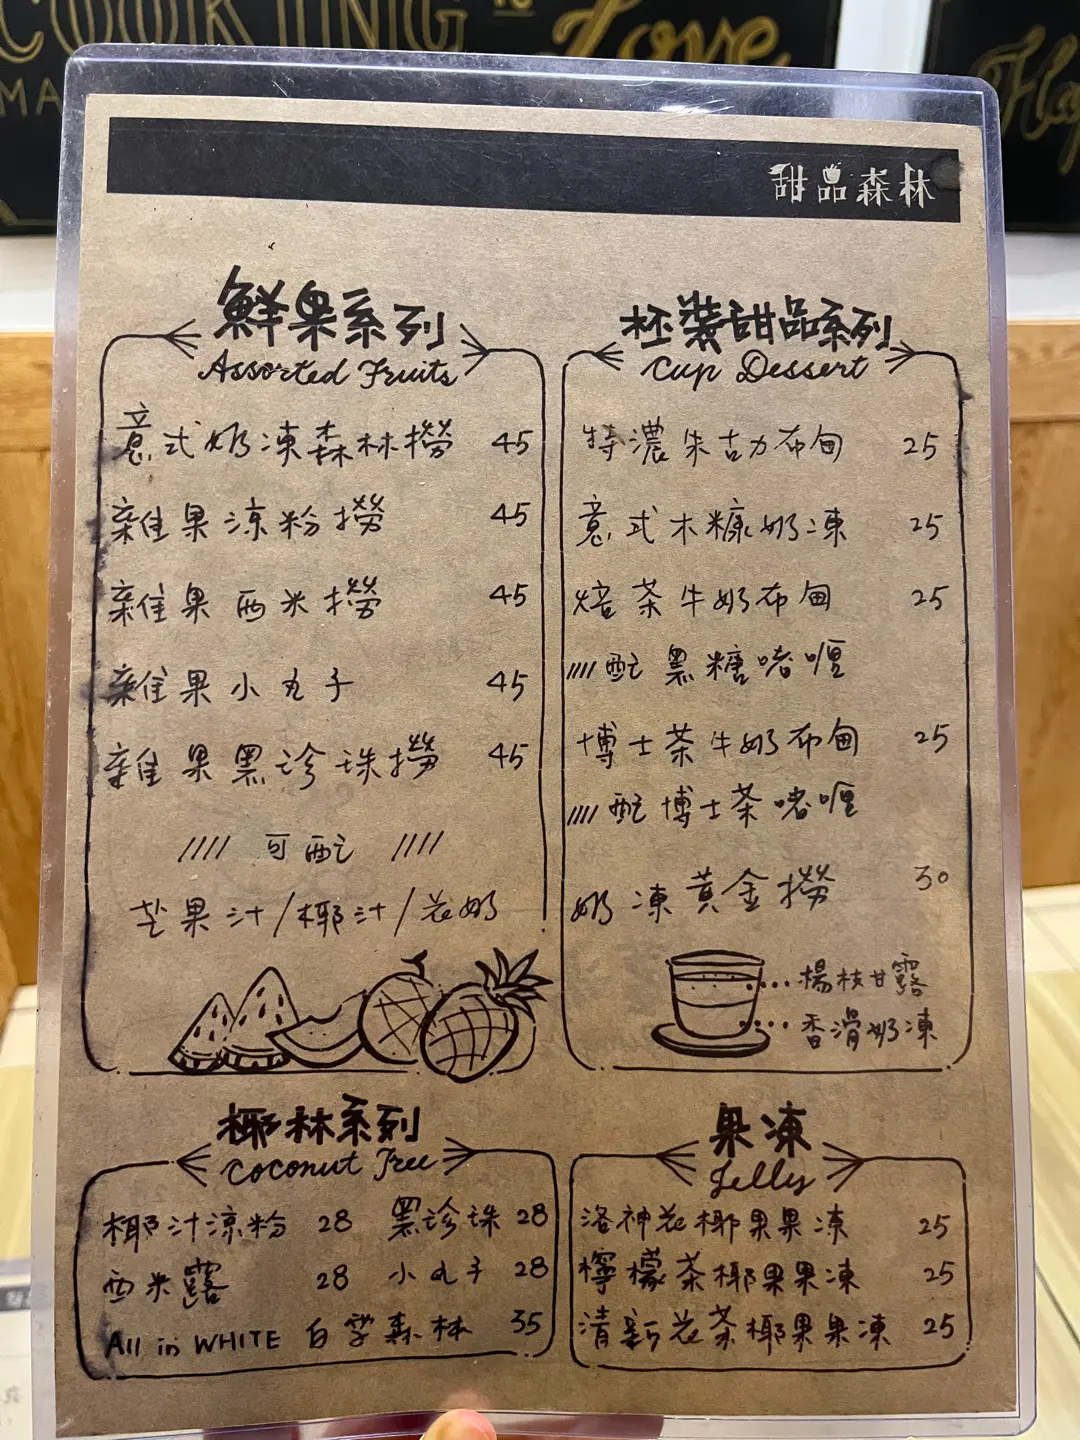 COOKING
Love
MA
甜品森林
鮮果系列
Assorted Fruits
意式奶凍森林撈 45
雜果涼粉撈 45
雜果西米撈 45
雜果小丸子 45
雜果黑珍珠撈 45
//// 可配 ////
芒果汁/椰汁/花奶
杯裝甜品系列
Cup Dessert
特濃朱古力布甸 25
意式木糠奶凍 25
焙茶牛奶布甸 25
////配黑糖啫喱
博士茶牛奶布甸 25
////配博士茶啫喱
奶凍黃金撈 30
...楊枝甘露
....香滑奶凍
椰林系列
Coconut Tree
椰汁涼粉 28 黑珍珠 28
西米露 28 小丸子 28
All in WHITE 白雪森林 35
果凍
Jelly
洛神花椰果果凍 25
檸檬茶椰果果凍 25
清新花茶椰果果凍 25